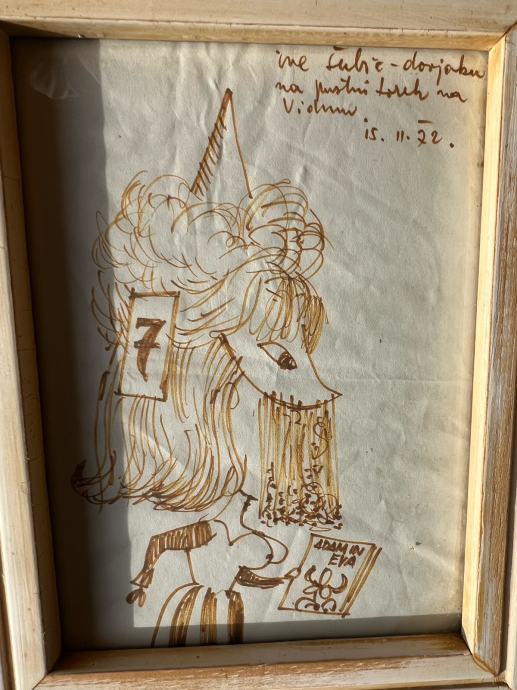 na pustni torek na
Vidmu
15. II. 72.
7
ADAM IN
EVA